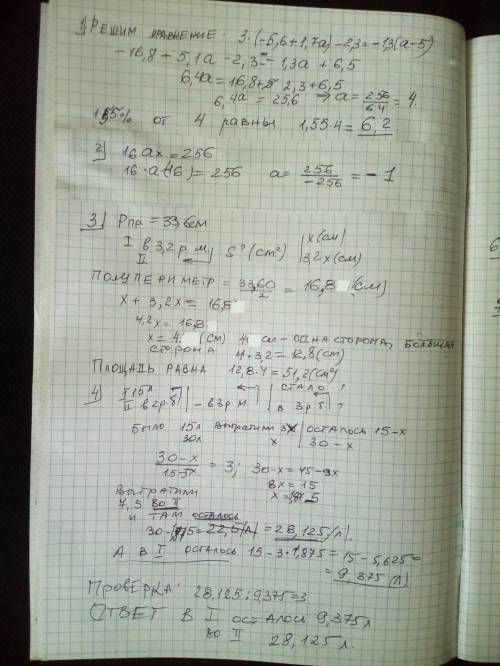 1) Решим уравнение: 3·(-5,6+1,7а)-2,3=-1,3(а-5)
-16,8+5,1а-2,3=-1,3а+6,5
6,4а=16,8+ 2,3+6,5
6,4а=25,6 → а=256/64=4.
155% от 4 равны 1,55·4=6,2
2) 16ах=256
16·а(-16)=256 а=256/-256=-1
3) Рпр=33,6см
I в 3,2 р.м. S?(см²) х(см)
II 3,2х(см)
Полупериметр=33,60/2=16,8 (см)
х+3,2х=16,8
4,2х=16,8
х=4 (см) 4 см-одна сторона, большая
сторона 4·3,2=12,8(см)
Площадь равна 12,8·4=51,2(см²)
4) I 15л стало ?
II в 2 р.б -в 3 р.м. в 3 р.б ?
Было 15л вытратили 3х осталось 15-х
30л х 30-х
30-х/15-3х=3; 30-х=45-9х
8х=15
Вытратили х=
7,5 во II
и там осталось
30- =22,5(л)=28,125(л).
А в I осталось 15-3·1,875=15-5,625=
=9,375(л)
Проверка: 28,125:9,375=3
Ответ в I осталось 9,375л
во II 28,125л.